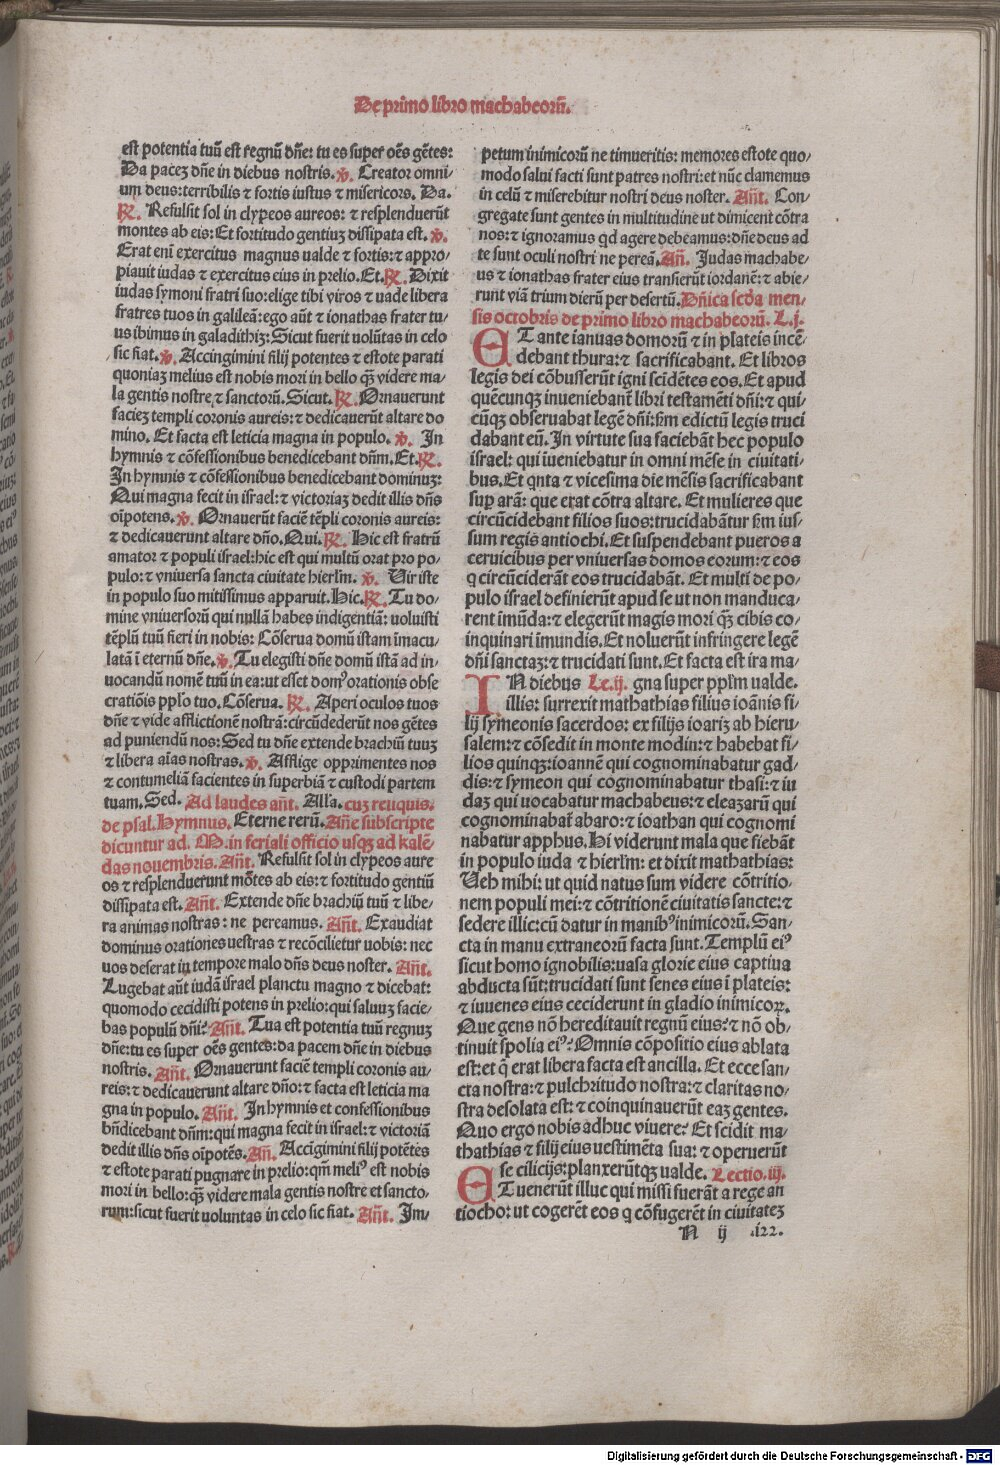 De primo libro machabeorū.
est potentia tuū est regnū dñe: tu es super oēs gētes:
Da pacez dñe in diebus nostris. ℣. Creator omni/
um deus: terribilis ⁊ fortis iustus ⁊ misericors. Da.
℟. Refulsit sol in clypeos aureos: ⁊ resplenduerūt
montes ab eis: Et fortitudo gentiuz dissipata est. ℣.
Erat eni exercitus magnus valde ⁊ fortis: ⁊ appro/
piauit iudas ⁊ exercitus eius in prelio. Et. ℟. Dixit
iudas symoni fratri suo: elige tibi viros ⁊ uade libera
fratres tuos in galileā: ego aūt ⁊ ionathas frater tu/
us ibimus in galadithiz: Sicut fuerit volūtas in celo
sic fiat. ℣. Accingimini filij potentes ⁊ estote parati
quoniaz melius est nobis mori in bello q̃ videre ma/
la gentis nostrę ⁊ sanctorū. Sicut. ℟. Ornauerunt
faciez templi coronis aureis: ⁊ dedicauerūt altare do
mino. Et facta est leticia magna in populo. ℣. In
hymnis ⁊ cōfessionibus benedicebant dñm. Et. ℟.
In hymnis ⁊ cōfessionibus benedicebant dominuz:
Qui magna fecit in israel: ⁊ victoriaz dedit illis dñs
oīpotens. ℣. Ornauerūt faciē tēpli coronis aureis:
⁊ dedicauerunt altare dño. Qui. ℟. Hic est fratrū
amator ⁊ populi israel: hic est qui multū orat pro po/
pulo: ⁊ vniuersa sancta ciuitate hierłm. ℣. Uir iste
in populo suo mitissimus apparuit. Hic. ℟. Tu do/
mine vniuersorū qui nullā habes indigentiā: voluisti
tēplū tuū fieri in nobis: Cōserua domū istam īmacu/
latā ī eternū dñe. ℣. Tu elegisti dñe domū istā ad in/
uocandū nomē tuū in ea: ut esset domꝰ orationis obse
cratiōis pplo tuo. Cōserua. ℟. Aperi oculos tuos
dñe ⁊ vide afflictionē nostrā: circūdederūt nos gētes
ad puniendū nos: Sed tu dñe extende brachiū tuuz
⁊ libera aīas nostras. ℣. Afflige opprimentes nos
⁊ contumeliā facientes in superbiā ⁊ custodi partem
tuam. Sed. Ad laudes añt. Alla. cuz reliquis.
de psal. Hymnus. Eterne rerū. Añe subscripte
dicuntur ad. M. in feriali officio usqz ad kalē/
das nouembris. Añt. Refulsit sol in clypeos aure
os ⁊ resplenduerunt mōtes ab eis: ⁊ fortitudo gentiū
dissipata est. Añt. Extende dñe brachiū tuū ⁊ libe/
ra animas nostras: ne pereamus. Añt. Exaudiat
dominus orationes uestras ⁊ recōcilietur uobis: nec
uos deserat in tempore malo dñs deus noster. Añt.
Lugebat aūt iudā israel planctu magno ⁊ dicebat:
quomodo cecidisti potens in prelio: qui saluuz facie/
bas populū dñi: Añt. Tua est potentia tuū regnuz
dñe: tu es super oēs gentes: da pacem dñe in diebus
nostris. Añt. Ornauerunt faciē templi coronis au/
reis: ⁊ dedicauerunt altare dño: ⁊ facta est leticia ma
gna in populo. Añt. In hymnis et confessionibus
bñdicebant dñm: qui magna fecit in israel: ⁊ victoriā
dedit illis dñs oīpotēs. Añ. Accīgimini filij potētes
⁊ estote parati pugnare in prelio: qm̄ meliꝰ est nobis
mori in bello: q̃ videre mala gentis nostre et sancto/
rum: sicut fuerit uoluntas in celo sic fiat. Añt. Im/
petum inimicorū ne timueritis: memores estote quo/
modo salui facti sunt patres nostri: et nūc clamemus
in celū ⁊ miserebitur nostri deus noster. Añt. Con/
gregate sunt gentes in multitudine ut dimicent cōtra
nos: ⁊ ignoramus qd agere debeamus: dñe deus ad
te sunt oculi nostri ne pereā. Añ. Judas machabe/
us ⁊ ionathas frater eius transierūt iordanē: ⁊ abie/
runt viā trium dierū per desertū. Dñica scda men/
sis octobris de primo libro machabeorū. L. j.
ET ante ianuas domorū ⁊ in plateis incē/
debant thura: ⁊ sacrificabant. Et libros
legis dei cōbusserūt igni scidētes eos. Et apud
quēcunqz inueniebant libri testamēti dñi: ⁊ qui/
cūqz obseruabat legē dñi: fm edictū legis truci
dabant eū. In virtute sua faciebāt hec populo
israel: qui iueniebatur in omni mēse in ciuitati/
bus. Et qnta ⁊ vicesima die mēsis sacrificabant
sup arā: que erat cōtra altare. Et mulieres que
circūcidebant filios suos: trucidabātur fm ius/
sum regis antiochi. Et suspendebant pueros a
ceruicibus per vniuersas domos eorum: ⁊ eos
q circūciderāt eos trucidabāt. Et multi de po/
pulo israel definierūt apud se ut non manduca/
rent īmūda: ⁊ elegerūt magis mori q̃ cibis co/
inquinari īmundis. Et noluerūt infringere legē
dñi sanctaz: ⁊ trucidati sunt. Et facta est ira ma/
IN diebus Le. ij. gna super pplm ualde.
illis: surrexit mathathias filius ioānis fi/
lij symeonis sacerdos: ex filijs ioariz ab hieru/
salem: ⁊ cōsedit in monte modin: ⁊ habebat fi/
lios quinqz: ioannē qui cognominabatur gad/
dis: ⁊ symeon qui cognominabatur thasi: ⁊ iu
daz qui uocabatur machabeus: ⁊ eleazarū qui
cognominabat̄ abaro: ⁊ ioathan qui cognomi
nabatur apphus. Hi viderunt mala que fiebāt
in populo iuda ⁊ hierłm: et dixit mathathias:
Ueh mihi: ut quid natus sum videre cōtritio/
nem populi mei: ⁊ cōtritionē ciuitatis sancte: ⁊
sedere illic: cū datur in manibꝰ inimicorū. San/
cta in manu extraneorū facta sunt. Templū eiꝰ
sicut homo ignobilis: uasa glorie eius captiua
abducta sūt: trucidati sunt senes eius ī plateis:
⁊ iuuenes eius ceciderunt in gladio inimicoꝝ.
Que gens nō hereditauit regnū eius: ⁊ nō ob/
tinuit spolia eiꝰ: Omnis cōpositio eius ablata
est: et q̄ erat libera facta est ancilla. Et ecce san/
cta nostra: ⁊ pulchritudo nostra: ⁊ claritas no/
stra desolata est: ⁊ coinquinauerūt eaz gentes.
Quo ergo nobis adhuc viuere: Et scidit ma/
thathias ⁊ filij eius uestimēta sua: ⁊ operuerūt
se cilicijs: planxerūtqz ualde. Lectio. iij.
ET uenerūt illuc qui missi fuerāt a rege an
tiocho: ut cogerēt eos q cōfugerēt in ciuitatez
N ij .122.
Digitalisierung gefördert durch die Deutsche Forschungsgemeinschaft - DFG